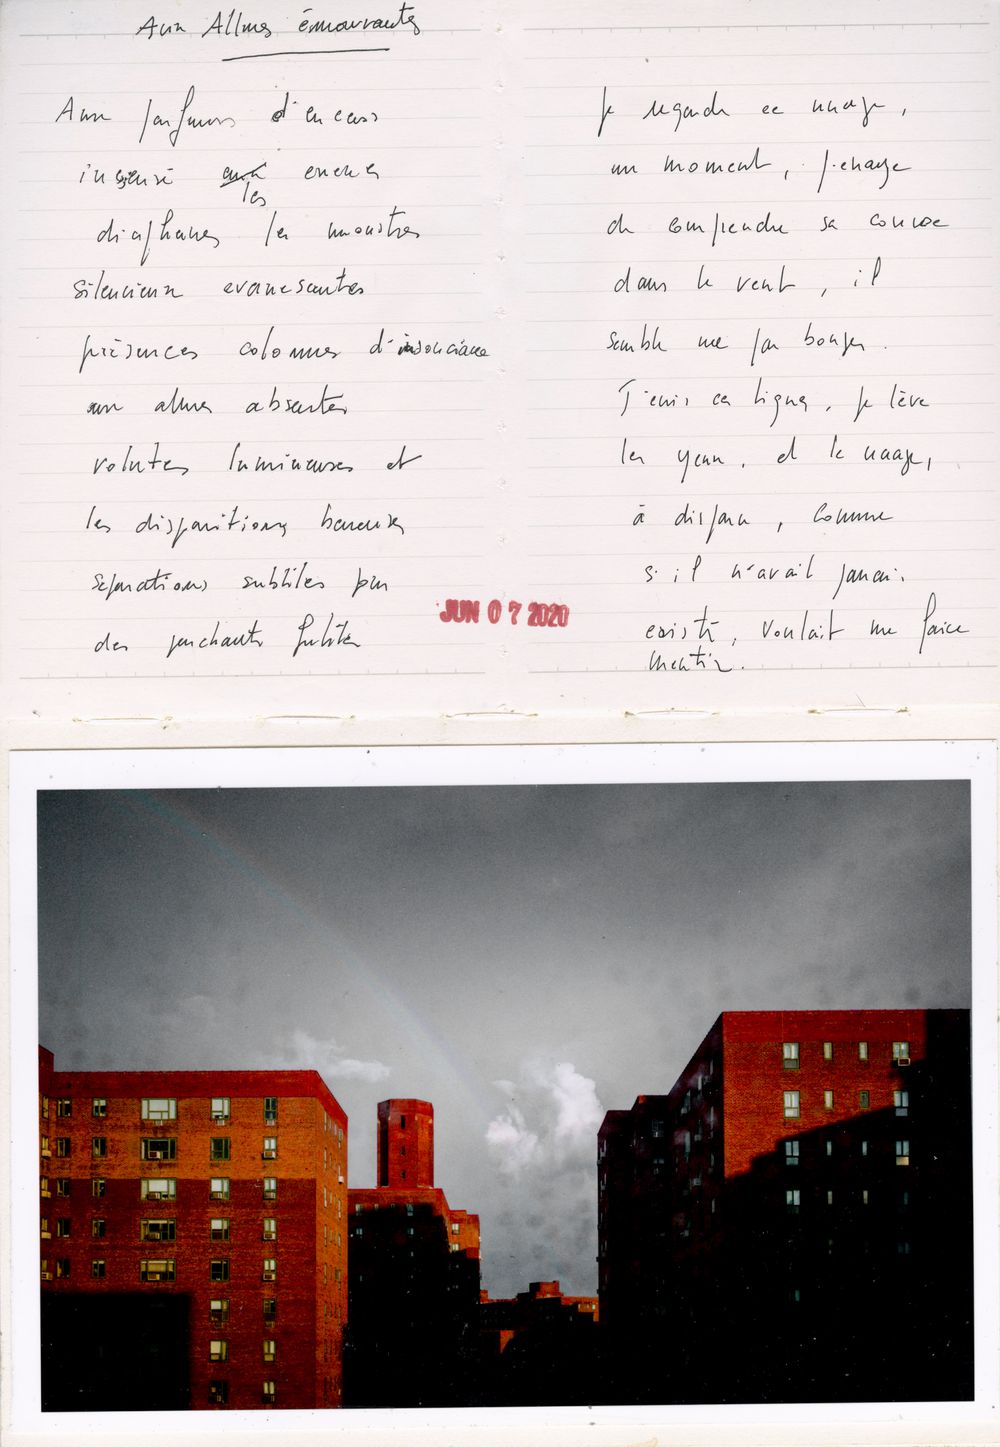 Aux Âmes émouvantes
Aux parfums d'encens
insensé encres
les
diaphanes les monstres
silencieux evanesantes
présences colonnes d'insouciance
aux absentes
volutes lumineuses et
les disparitions heureuses
séparations subtiles par
des penchants futiles
JUN 07 2020
Je regarde ce nuage,
un moment, j'essaye
de comprendre sa course
dans le vent, il
semble ne pas bouger.
J'ecris ces lignes, je lève
les yeux, et le nuage,
à disparu, comme
s'il n'avait jamais
existé, voulait me faire
mentir.